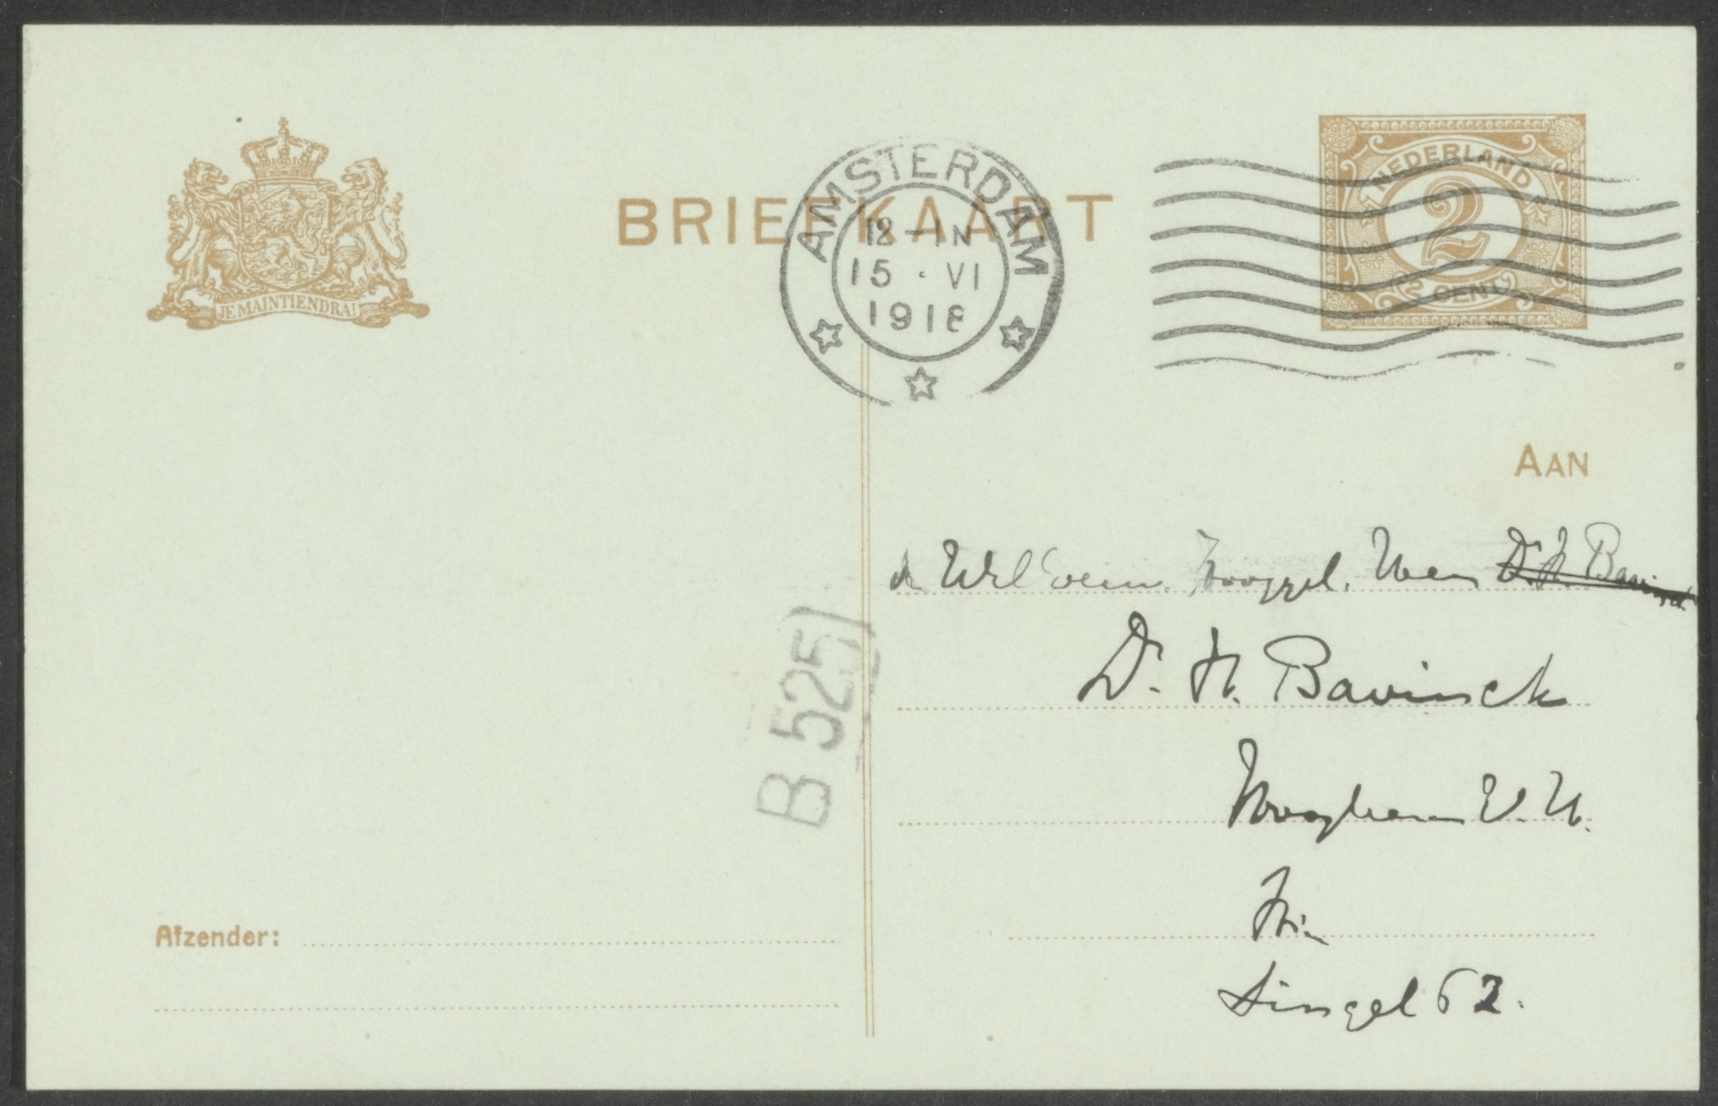 JE MAINTIENDRAI
BRIEFKAART
AMSTERDAM
12-1N
15 · VI
1918
NEDERLAND
2
2 CENT
AAN
den Weleerw. Hooggel. Heer D. H. Bavinck
Dr. H. Bavinck
Hoogleeraar V.U.
Singel 62.
B 525
Afzender: